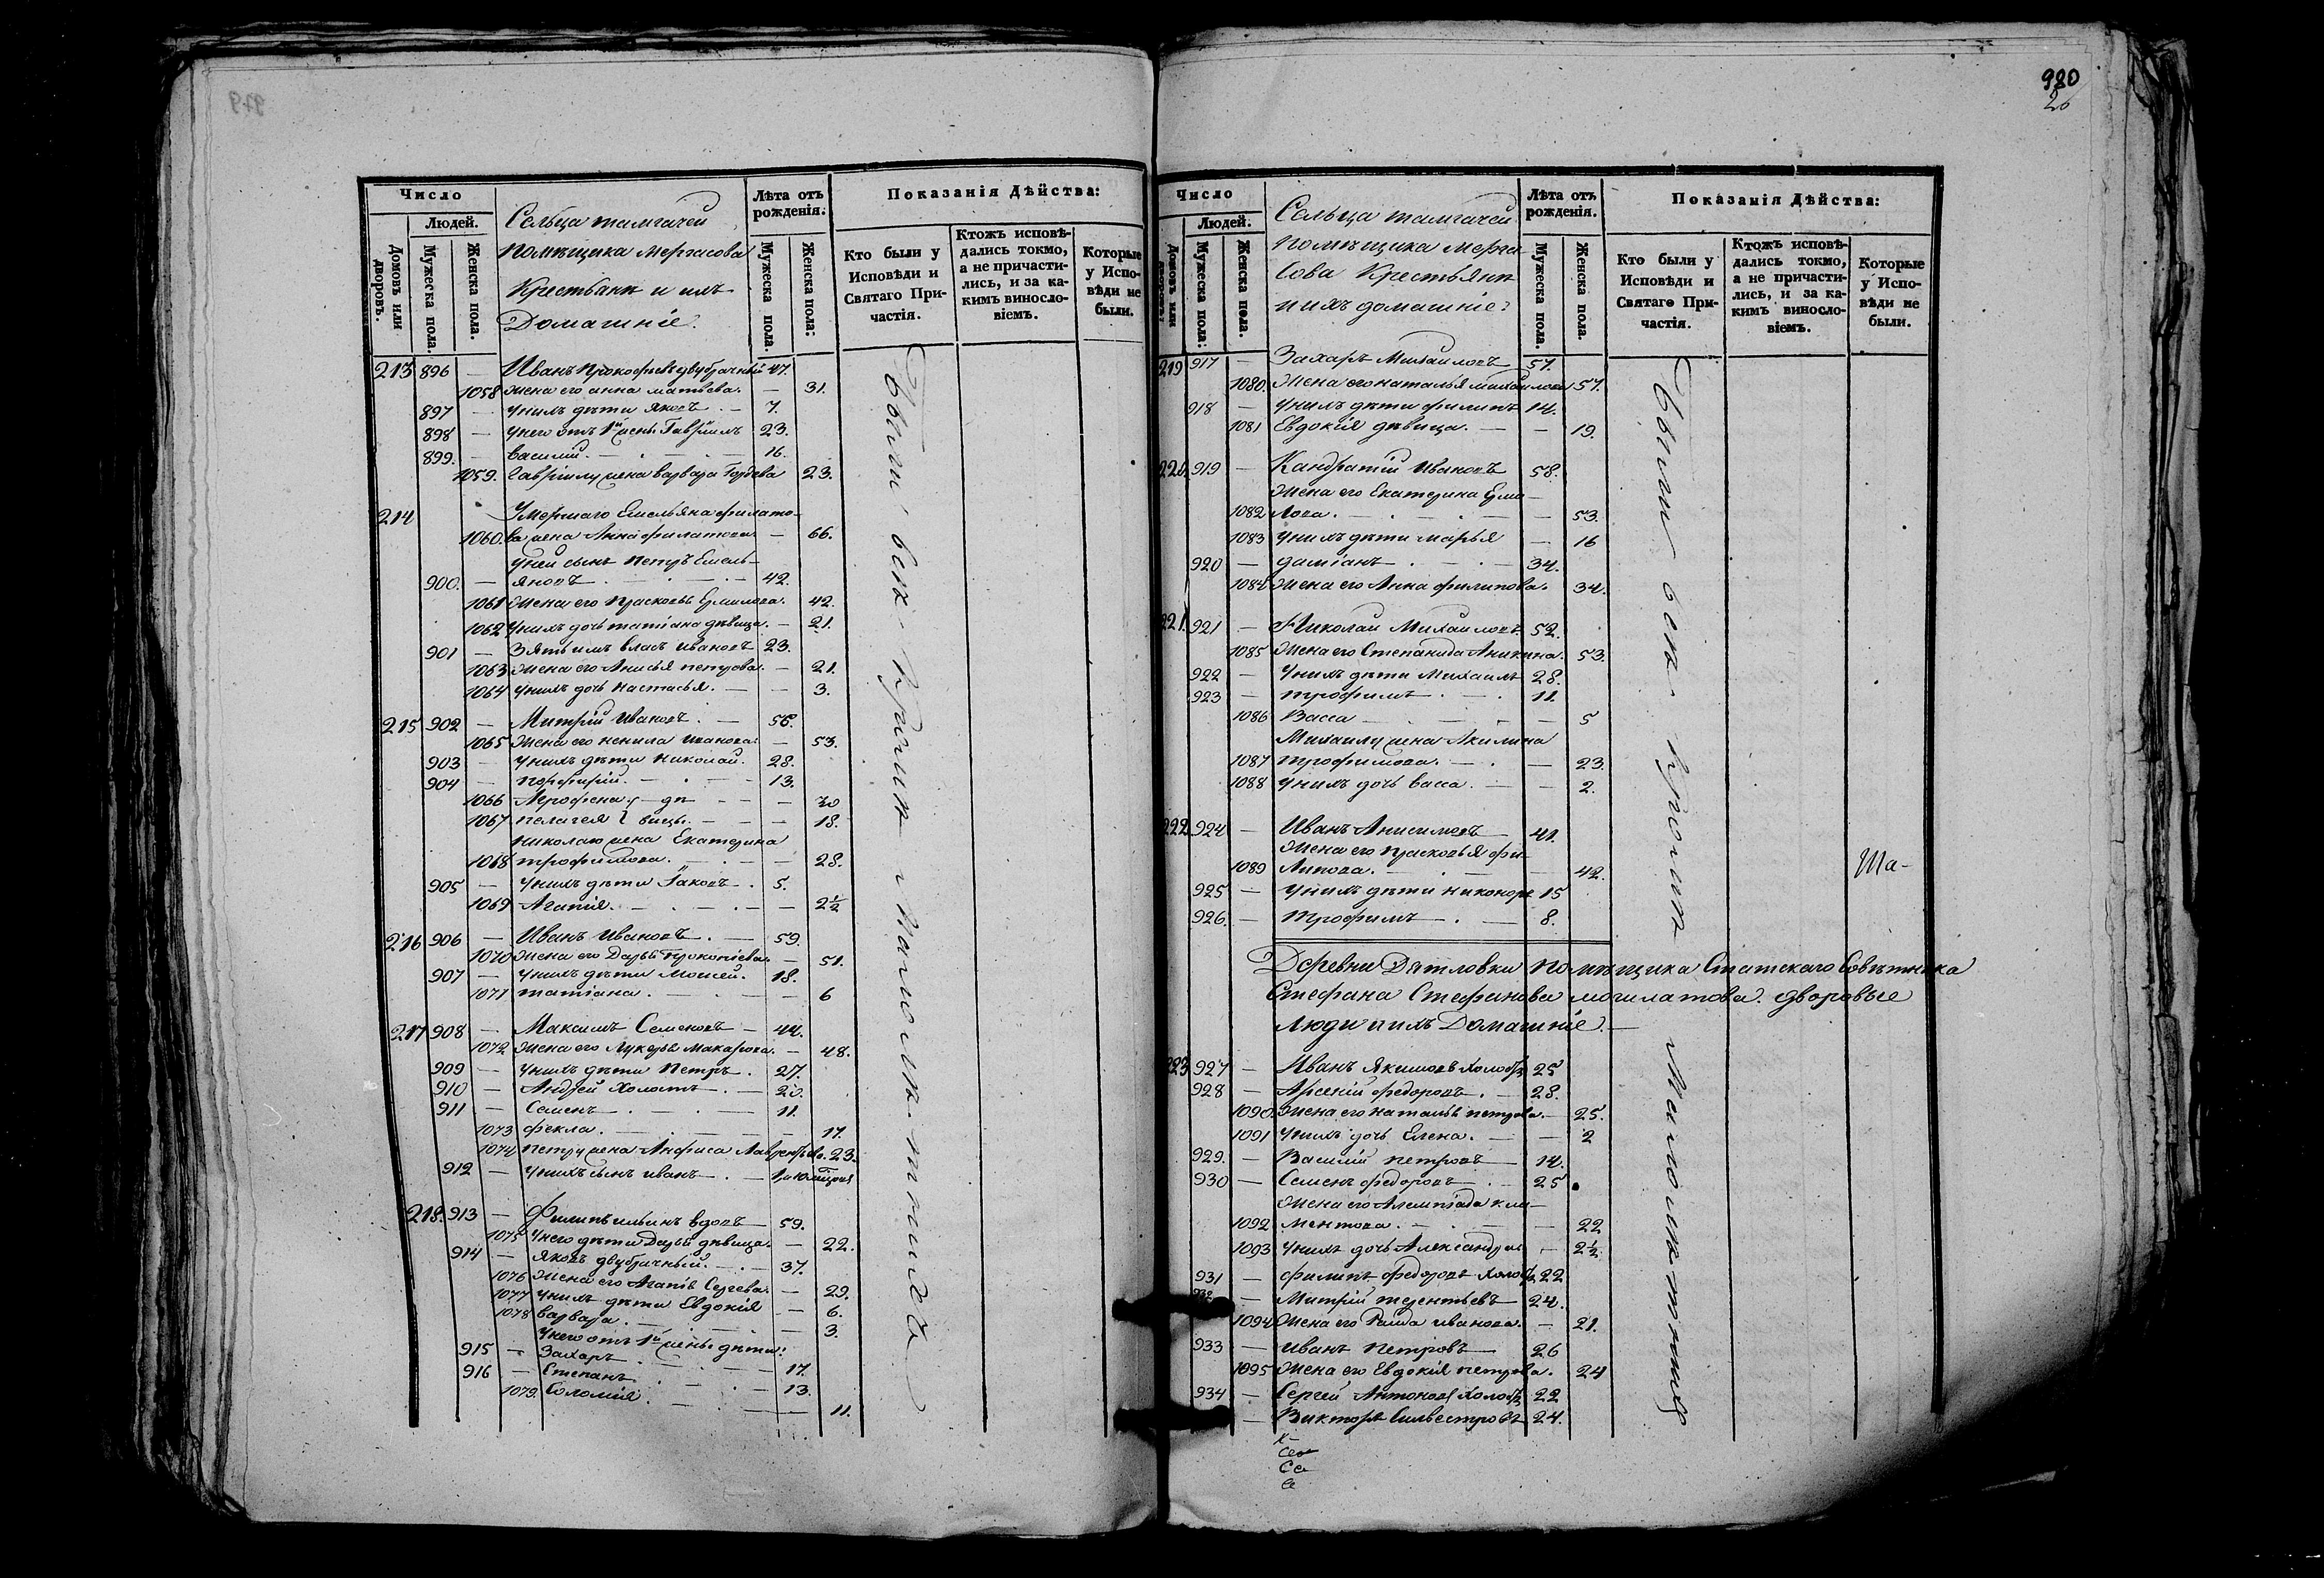 980
26
Число
Людей.
Домовъ или дворовъ.
Мужеска пола.
Женска пола.
Сельца
помѣщика Мергасова
Крестьяне и ихъ
Домашніе.
Лѣта отъ рожденія.
Мужеска пола.
Женска пола.
Показанія Дѣйства:
Кто были у Исповѣди и Святаго Причастія.
Ктожъ исповѣдались токмо, а не причастились, и за какимъ винословіемъ.
Которые у Исповѣди не были.
213 896 — Иванъ Прокофьевъ двубрачный 47.
1058 Жена его анна матвѣева. — 31.
897 — Унихъ дѣти Яковъ . — 7.
898 — Унего отъ 1й жены Гавріилъ 23.
899. — Василій. — 16.
1059. Гаврилу жена варвара Гордѣева 23.
214 Умершаго Емельяна филато-
1060. ва жена Анна филатова — 66.
Уней сынъ Петръ Емель-
900. — яновъ — 42.
1061 Жена его Прасковья Ермилова. 42.
1062 Унихъ дочь татіана дѣвица. — 21.
901 — Зять имъ власъ ивановъ 23.
1063 Жена его Анисья петрова. — 21.
1064 Унихъ дочь Настасья. — — 3.
215 902 — Митрій Ивановъ . — 56.
1065 Жена его ненила иванова. — 53.
903 — Унихъ дѣти Николай. 28.
904 — порфирій. — 13.
1066 — дѣ — — 20
1067 пелагея вицы. — — 18.
Николаю жена Екатерина
1068 трофимова. — — 28.
905 — Унихъ дѣти Іаковъ . 5.
1069 Агапія. — — 2½
216 906 — Иванъ Ивановъ . — 59.
1070 Жена его Дарья Прокопіева. — 51.
907 — Унихъ дѣти Моисей. 18.
1071 татіана. — — 6
217 908 — Максимъ Семеновъ — 44.
1072 Жена его Лукерья Макарова. — 48.
909 — Унихъ дѣти Петръ . 27.
910 — Андрей Холостъ . — 20.
911 — Семенъ — . — 11.
1073 фекла. — — 17.
1074 Петру жена Анфиса Лаврентьева. 23.
912 — Унихъ сынъ иванъ — . —
218. 913 — Филипъ ильинъ вдовъ — 59.
1075 Унего дѣти Дарья дѣвица. — 22.
914 — Яковъ двубрачный. — 37.
1076 Жена его Агапія Сергева. — 29.
1077 Унихъ дѣти Евдокія — 6.
1078 варвара. — — 3.
Унего отъ 1й жены дѣти:
915 — Захаръ . — 17.
916 — Степанъ . — 13.
1079. Соломія. — — 11.
Были всѣ
Число
Людей.
Домовъ или дворовъ.
Мужеска пола.
Женска пола.
Сельца
помѣщика Мерга-
сова Крестьяне
иихъ домашніе:
Лѣта отъ рожденія.
Мужеска пола.
Женска пола.
Показанія Дѣйства:
Кто были у Исповѣди и Святаго Причастія.
Ктожъ исповѣдались токмо, а не причастились, и за какимъ винословіемъ.
Которые у Исповѣди не были.
219 917 — Захаръ Михайловъ 57.
1080. Жена его наталья михайлова 57.
918 — Унихъ дѣти филипъ 14.
1081 Евдокія дѣвица. — — 19.
220. 919 — Кандратій Ивановъ 58.
Жена его Екатерина Ерми-
1082 лова. — 53.
1083 Унихъ дѣти марья — 16
920 — даміанъ . — 34.
1084 Жена его Анна филипова. 34.
221. 921 — Николай Михайловъ 52.
1085 Жена его Степанида Аникина. 53.
922 — Унихъ дѣти Михаилъ 28.
923 — трофимъ . — 11.
1086 Васса — — 5
Михаилу жена Акилина
1087 трофимова. — — 23.
1088 Унихъ дочь васса. — — 2.
222 924 — Иванъ Анисимовъ — 41.
Жена его прасковья фи-
1089 липова. — 42.
925 — Унихъ дѣти никоноръ 15
926. — трофимъ — . — 8.
Деревни Дятловки помѣщика Статскаго Совѣтника
Стефана Стефанова дворовые
люди иихъ Домашніе. —
223 927 — Иванъ Якимовъ Холостъ 25
928 — Арсеній федоровъ . — 28.
1090. Жена его наталья петрова. — 25.
1091 Унихъ дочь Елена. — — 2
929. — Василій петровъ — 14.
930 — Семенъ федоровъ — 25
Жена его Олимпіада кли-
1092 ментова. — 22
1093 Унихъ дочь Александра — 2½.
931 — филипъ федоровъ Холостъ 22
932 — Митрій терентьевъ 24.
1094 Жена его Раида иванова. — 21.
933 — иванъ петровъ — 26
1095 Жена его Евдокія петрова. 24
934 — Сергей Антоновъ Холостъ 22
— Викторъ Сильвестровъ 24.
Были всѣ
Ша-